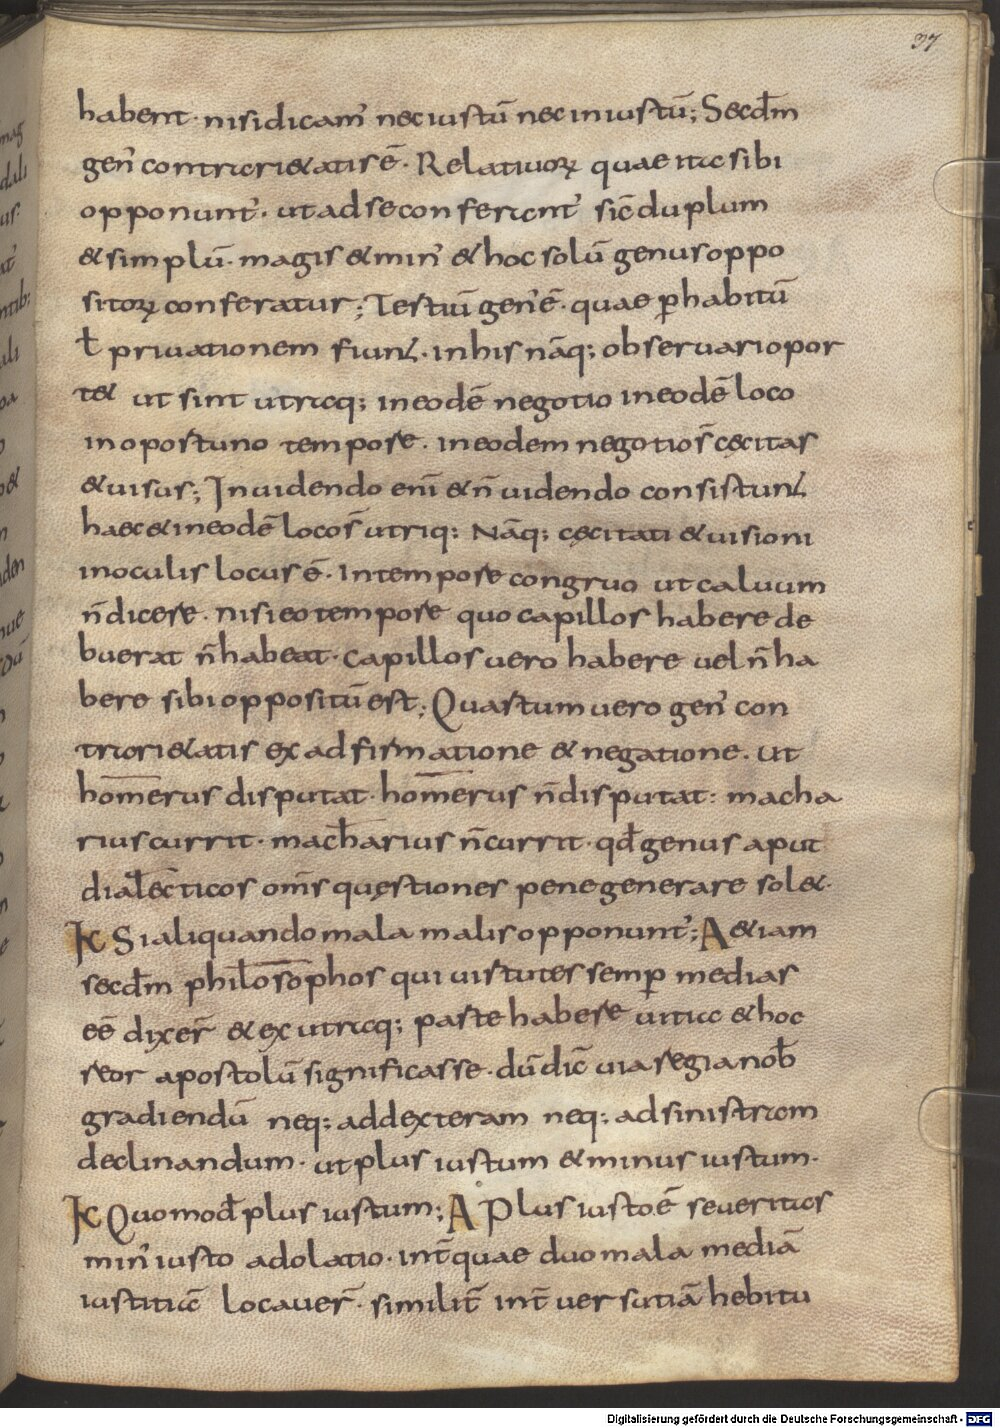 37
habent· nisi dicam᾽ nec iustū nec iniustū; Secđm
gen᾽ contrarietatis ē· Relatiuoꝝ quae ita sibi
opponunt᾽· ut ad se conferant᾽ sic̄ duplum
& simplū· magis & min᾽ & hoc solū genus oppo
sitoꝝ conferatur; Tertiū gen᾽ ē· quae ꝑ habitū
ł priuationem fiunt· in his nāq; obseruari opor
t& ut sint utraq; in eodē negotio in eodē loco
in oportuno tempore· in eodem negotio s̄ cęcitas
& uisus; In uidendo enī & n̄ uidendo consistunt
haec & in eodē loco s̄ utriq: Nāq; cęcitati & uisioni
in oculis locus ē· In tempore congruo ut caluum
n̄ dicere· nisi eo tempore quo capillos habere de
buerat n̄ habeat· capillos uero habere uel n̄ ha
bere sibi oppositū est; Quartum uero gen᾽ con
trari&atis ex adfirmatione & negatione· ut
hom̄erus disputat· hom̄erus n̄ disputat: macha
rius currit· macħarius n̄ currit· qđ genus aput
dialec̄ticos om̄s quęstiones pene generare sol&·
K Si aliquando mala malis opponunt᾽; A &iam
secđm philosophos qui uirtutes semꝑ medias
eē dixer̄ & ex utraq; parte habere uitia & hoc
reor apostolū significasse· dū dic̄ uia regia nob̄
gradiendū neq; ad dexteram neq; ad sinistram
declinandum· ut plus iustum & minus iustum·
K Quomođ plus iustum; A Plus iusto ē seueritas
min᾽ iusto adolatio· int̄ quae duo mala mediā
iustitiā locauer̄· similit̄ int̄ uersutiā hebitu
Digitalisierung gefördert durch die Deutsche Forschungsgemeinschaft - DFG